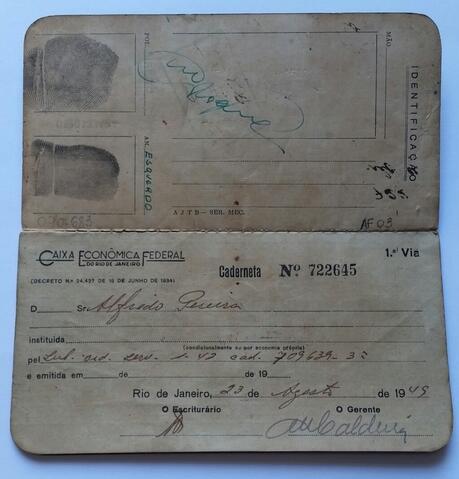 IDENTIFICAÇÃO
MÃO
POL.
AN. ESQUERDO
AJTB - SER. MEC.
AF 03
CAIXA ECONÔMICA FEDERAL
DO RIO DE JANEIRO
1.ª Via
Caderneta Nº 722645
(DECRETO N.º 24.427 DE 19 DE JUNHO DE 1934)
D Sr. Alfredo Pereira
instituida
(condicionalmente ou por economia própria)
pel Sub. ord. serv. 1-42 cad. 709639-3ª
e emitida em de de 19
Rio de Janeiro, 23 de Agosto de 1949
O Escriturário O Gerente